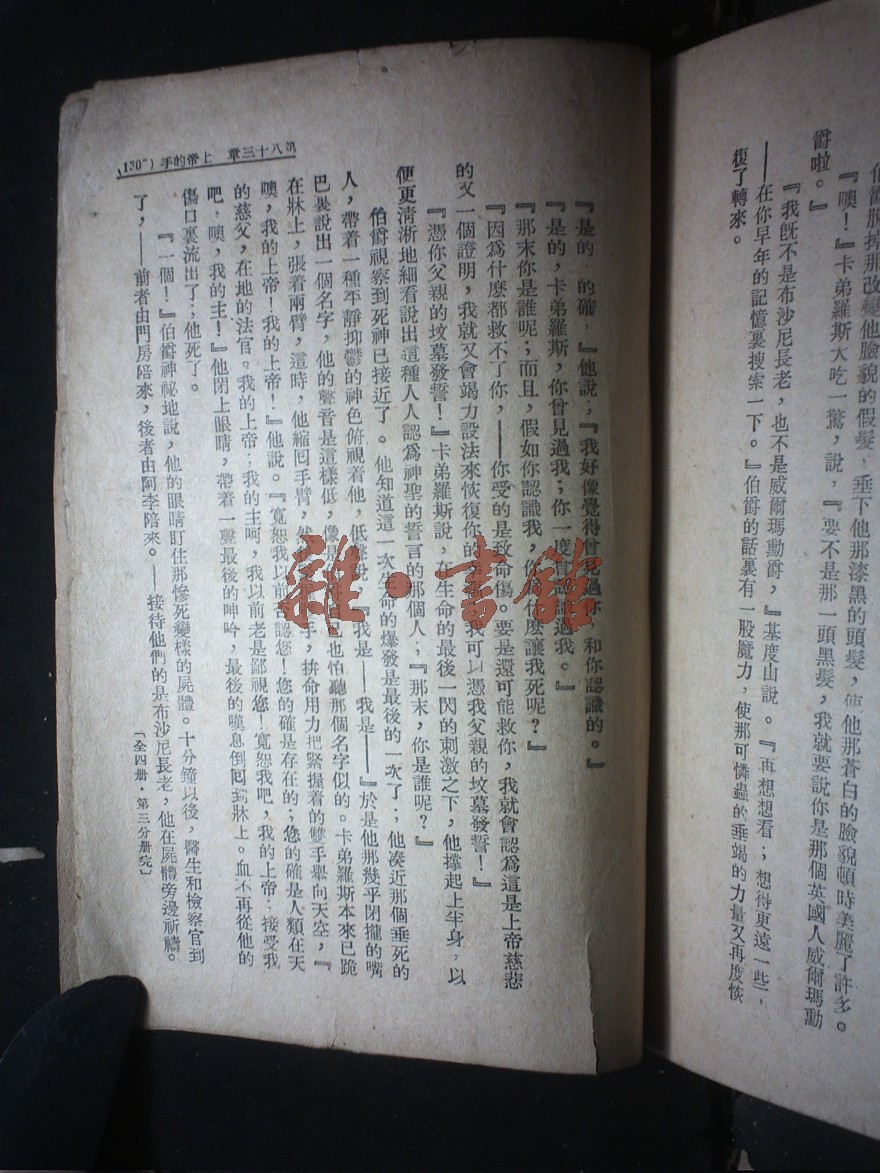 伯爵脫掉那改變他臉貌的假髮，垂下他那漆黑的頭髮，使他那蒼白的臉貌頓時美麗了許多。
『噢！』卡弟羅斯大吃一驚，說，『要不是那一頭黑髮，我就要說你是那個英國人威爾瑪勳
爵啦。』
『我旣不是布沙尼長老，也不是威爾瑪勳爵，』基度山說。『再想想看；想得更遠一些，
——在你早年的記憶裏搜索一下。』伯爵的話裏有一股魔力，使那可憐蟲的垂竭的力量又再度恢
復了轉來。
第八十三章　上帝的手
『是的，的確，』他說；『我好像覺得曾見過你，和你認識的。』
『是的，卡弟羅斯，你曾見過我；你一度曾認識過我。』
『那末你是誰呢；而且，假如你認識我，你為什麼讓我死呢？』
『因為什麼都救不了你，——你受的是致命傷。要是還可能救你，我就會認為這是上帝慈悲
的又一個證明，我就又會竭力設法來恢復你的我可以憑我父親的坟墓發誓！』
『憑你父親的坟墓發誓！』卡弟羅斯說，在生命的最後一閃的刺激之下，他撐起上半身，以
便更清淅地細看說出這種人人認為神聖的誓言的那個人；『那末，你是誰呢？』
伯爵視察到死神已接近了。他知道這一次生命的爆發是最後的一次了；他湊近那個垂死的
人，帶着一種平靜抑鬱的神色俯視着他，低聲說，『我是——我是——』於是他那幾乎閉攏的嘴
巴異說出一個名字，他的聲音是這樣低，像是也怕聽那個名字似的。卡弟羅斯本來已跪
在牀上，張着兩臂，這時，他縮回手臂，然手，拚命用力把緊握着的雙手舉向天空，『
噢，我的上帝！我的上帝！』他說。『寬恕我以前否認您！您的確是存在的；您的確是人類在天
的慈父，在地的法官。我的上帝；我的主呵，我以前老是鄙視您！寬恕我吧，我的上帝；接受我
吧，噢，我的主！』他閉上眼睛，帶着一聲最後的呻吟，最後的嘆息倒回到牀上。血不再從他的
傷口裏流出了；他死了。
『一個！』伯爵神祕地說，他的眼睛盯住那慘死變樣的屍體。十分鐘以後，醫生和檢察官到
了，——前者由門房陪來，後者由阿李陪來。——接待他們的是布沙尼長老，他在屍體旁邊祈禱。
〔全四册·第三分册完〕
雜·書館